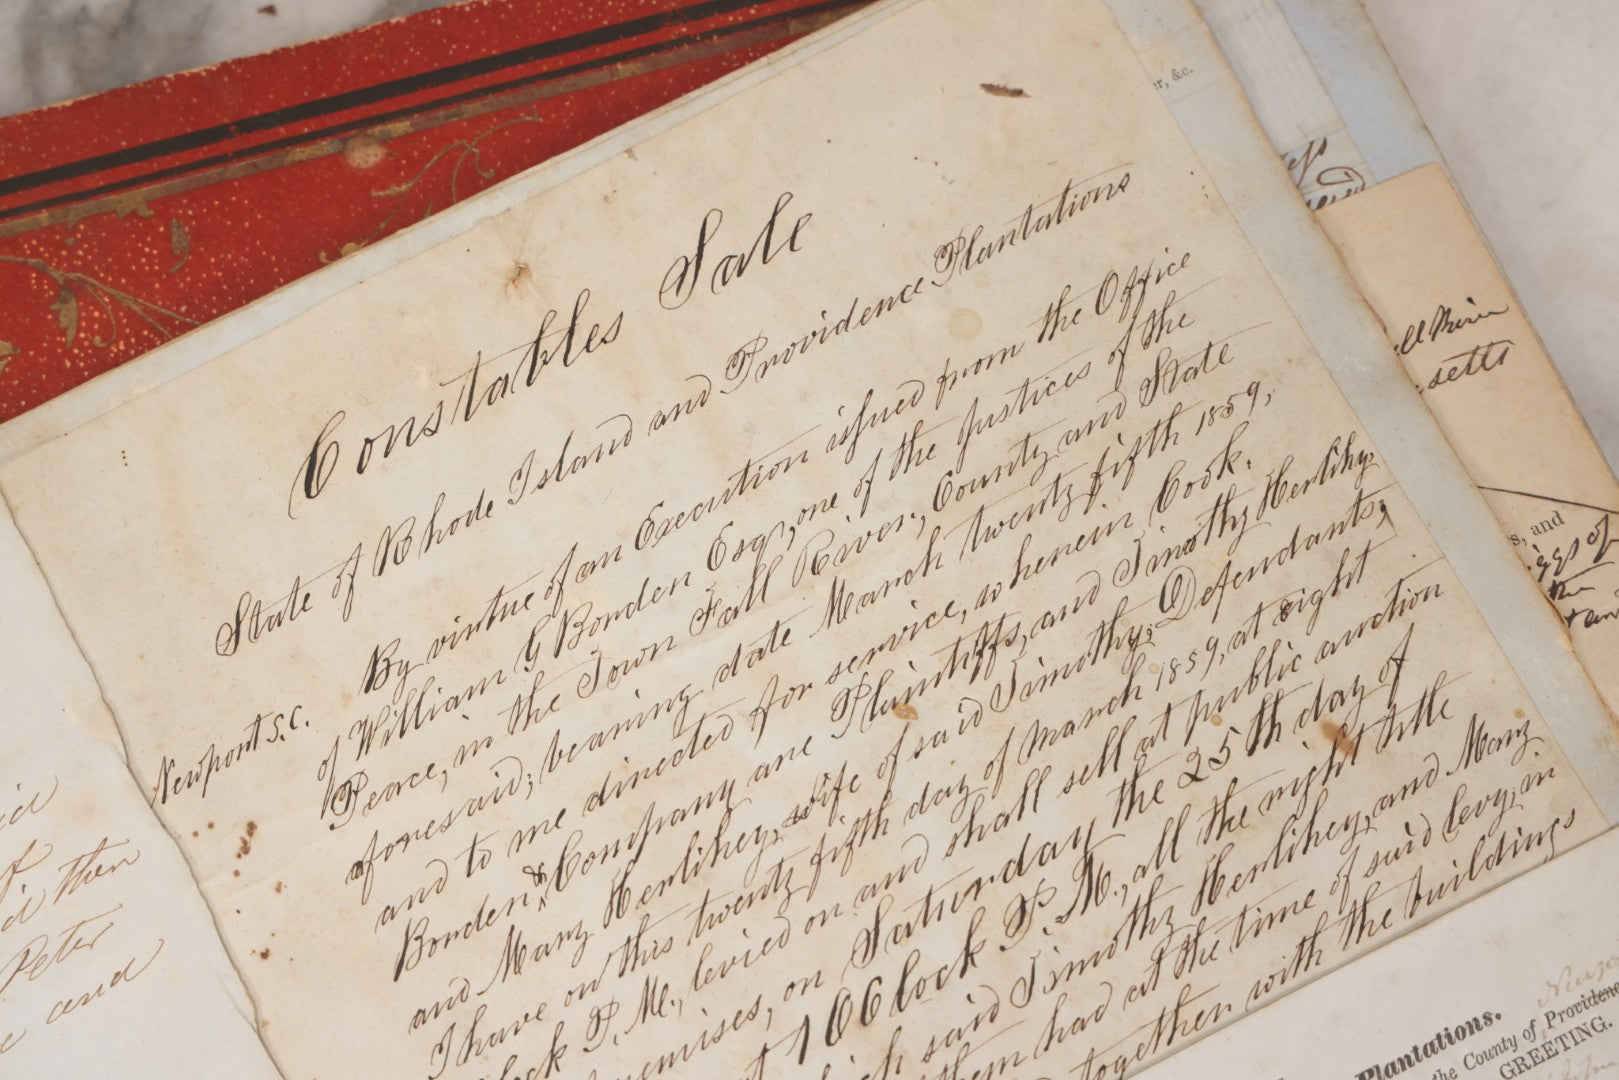 Constables Sale
State of Rhode Island and Providence Plantations
Newport S.C.
By virtue of an Execution issued from the Office
of William G Borden Esqr, one of the Justices of the
Peace, in the Town Fall River, County and State
aforesaid; bearing date March twenty fifth 1859,
and to me directed for service, wherein Cook.
Borden & Company are Plaintiffs, and Timothy Herlihy.
and Mary Herlihey, wife of said Timothy; Defendants;
I have on this twenty fifth day of March 1859, at eight
lock P. M., levied on and shall sell at public auction
emises, on Saturday the 25th day of
t 1 O Clock P. M., all the right title
ch said Timothy Herlihey, and Mary
them had at the time of said levy, in
together with the buildings
r, &c.
ll River
setts
s, and
of
id
f
d then
Peter
e and
Plantations.
the County of Providence
GREETING.